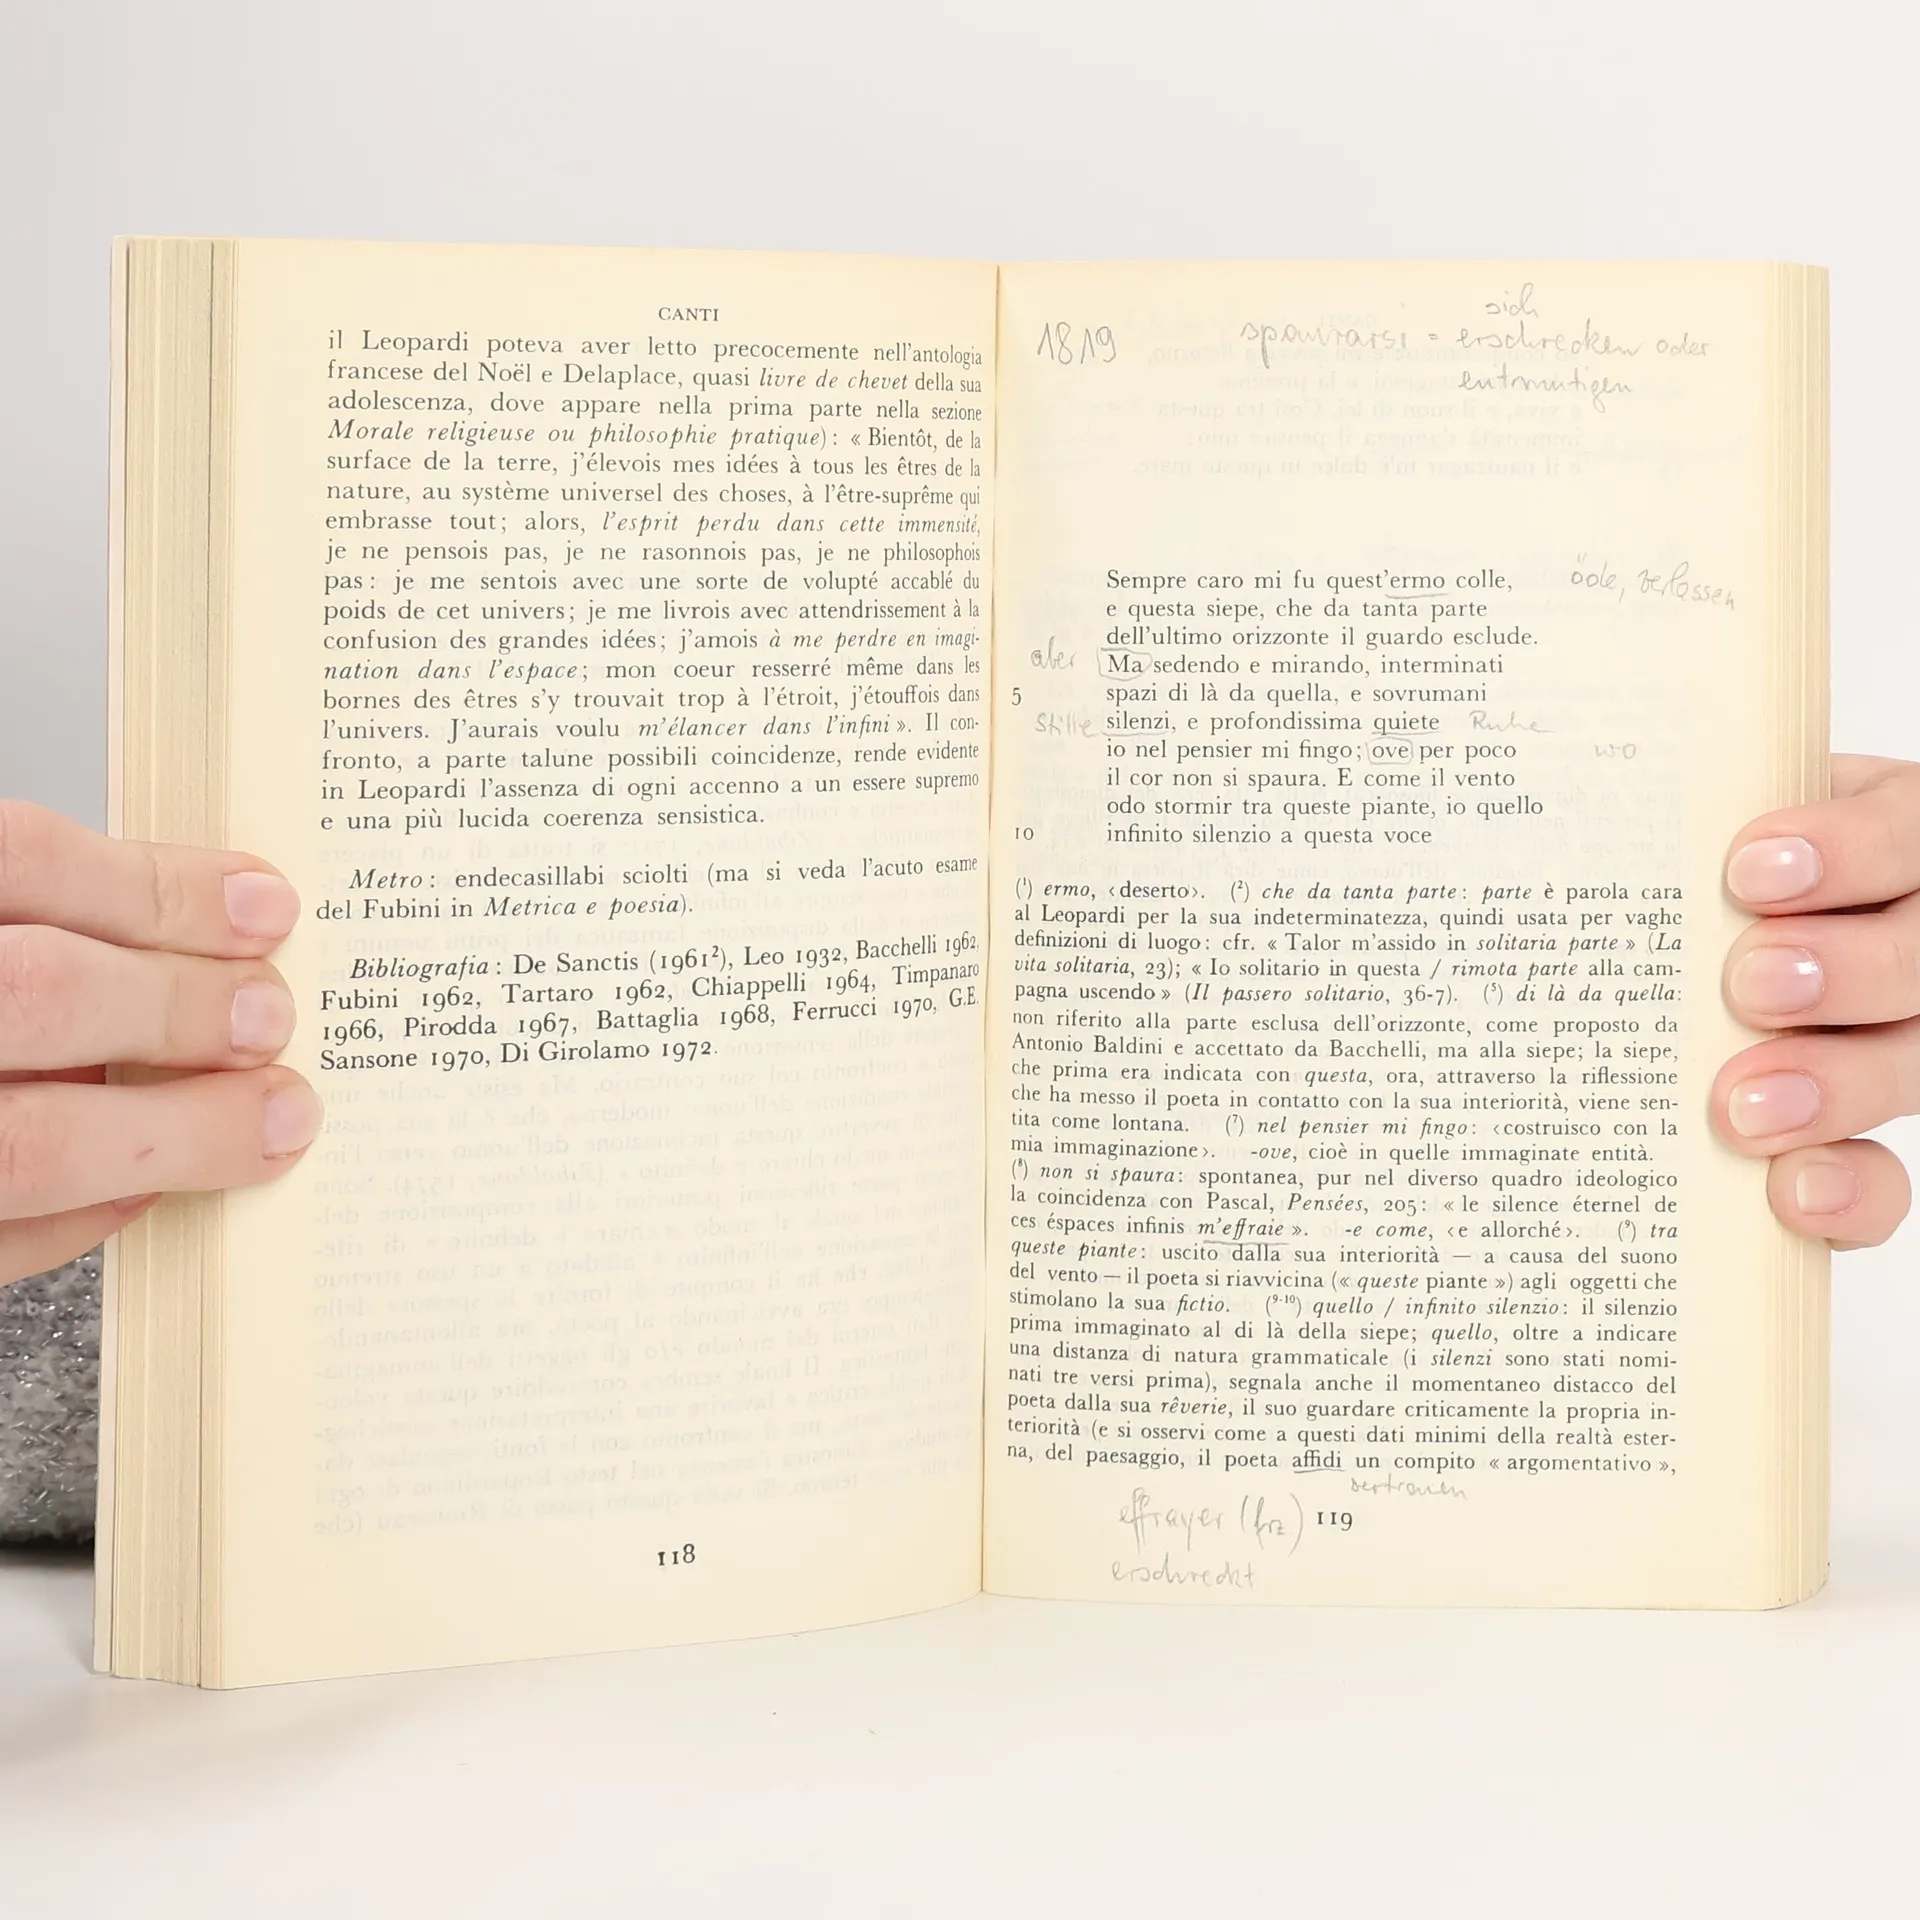 CANTI
il Leopardi poteva aver letto precocemente nell'antologia
francese del Noël e Delaplace, quasi livre de chevet della sua
adolescenza, dove appare nella prima parte nella sezione
Morale religieuse ou philosophie pratique): « Bientôt, de la
surface de la terre, j'élevois mes idées à tous les êtres de la
nature, au système universel des choses, à l'être-suprême qui
embrasse tout; alors, l'esprit perdu dans cette immensité,
je ne pensois pas, je ne rasonnois pas, je ne philosophois
pas: je me sentois avec une sorte de volupté accablé du
poids de cet univers; je me livrois avec attendrissement à la
confusion des grandes idées; j'amois à me perdre en imagi-
nation dans l'espace; mon coeur resserré même dans les
bornes des êtres s'y trouvait trop à l'étroit, j'étouffois dans
l'univers. J'aurais voulu m'élancer dans l'infini ». Il con-
fronto, a parte talune possibili coincidenze, rende evidente
in Leopardi l'assenza di ogni accenno a un essere supremo
e una più lucida coerenza sensistica.
Metro: endecasillabi sciolti (ma si veda l'acuto esame
del Fubini in Metrica e poesia).
Bibliografia: De Sanctis (1961²), Leo 1932, Bacchelli 1962,
Fubini 1962, Tartaro 1962, Chiappelli 1964, Timpanaro
1966, Pirodda 1967, Battaglia 1968, Ferrucci 1970, G.E.
Sansone 1970, Di Girolamo 1972.
118
sich
1819 spaurarsi = erschrecken oder
entmutigen
Sempre caro mi fu quest'ermo colle, öde, verlassen
e questa siepe, che da tanta parte
dell'ultimo orizzonte il guardo esclude.
aber Ma sedendo e mirando, interminati
5 spazi di là da quella, e sovrumani
Stille silenzi, e profondissima quiete Ruhe
io nel pensier mi fingo; ove per poco wo
il cor non si spaura. E come il vento
odo stormir tra queste piante, io quello
10 infinito silenzio a questa voce
(¹) ermo, ‹deserto›. (²) che da tanta parte: parte è parola cara
al Leopardi per la sua indeterminatezza, quindi usata per vaghe
definizioni di luogo: cfr. « Talor m'assido in solitaria parte » (La
vita solitaria, 23); « Io solitario in questa / rimota parte alla cam-
pagna uscendo » (Il passero solitario, 36-7). (⁵) di là da quella:
non riferito alla parte esclusa dell'orizzonte, come proposto da
Antonio Baldini e accettato da Bacchelli, ma alla siepe; la siepe,
che prima era indicata con questa, ora, attraverso la riflessione
che ha messo il poeta in contatto con la sua interiorità, viene sen-
tita come lontana. (⁷) nel pensier mi fingo: ‹costruisco con la
mia immaginazione›. -ove, cioè in quelle immaginate entità.
(⁸) non si spaura: spontanea, pur nel diverso quadro ideologico
la coincidenza con Pascal, Pensées, 205: « le silence éternel de
ces éspaces infinis m'effraie ». -e come, ‹e allorché›. (⁹) tra
queste piante: uscito dalla sua interiorità — a causa del suono
del vento — il poeta si riavvicina (« queste piante ») agli oggetti che
stimolano la sua fictio. (⁹⁻¹⁰) quello / infinito silenzio: il silenzio
prima immaginato al di là della siepe; quello, oltre a indicare
una distanza di natura grammaticale (i silenzi sono stati nomi-
nati tre versi prima), segnala anche il momentaneo distacco del
poeta dalla sua rêverie, il suo guardare criticamente la propria in-
teriorità (e si osservi come a questi dati minimi della realtà ester-
na, del paesaggio, il poeta affidi un compito « argomentativo »,
vertrauen
effrayer (frz.) 119
erschreckt